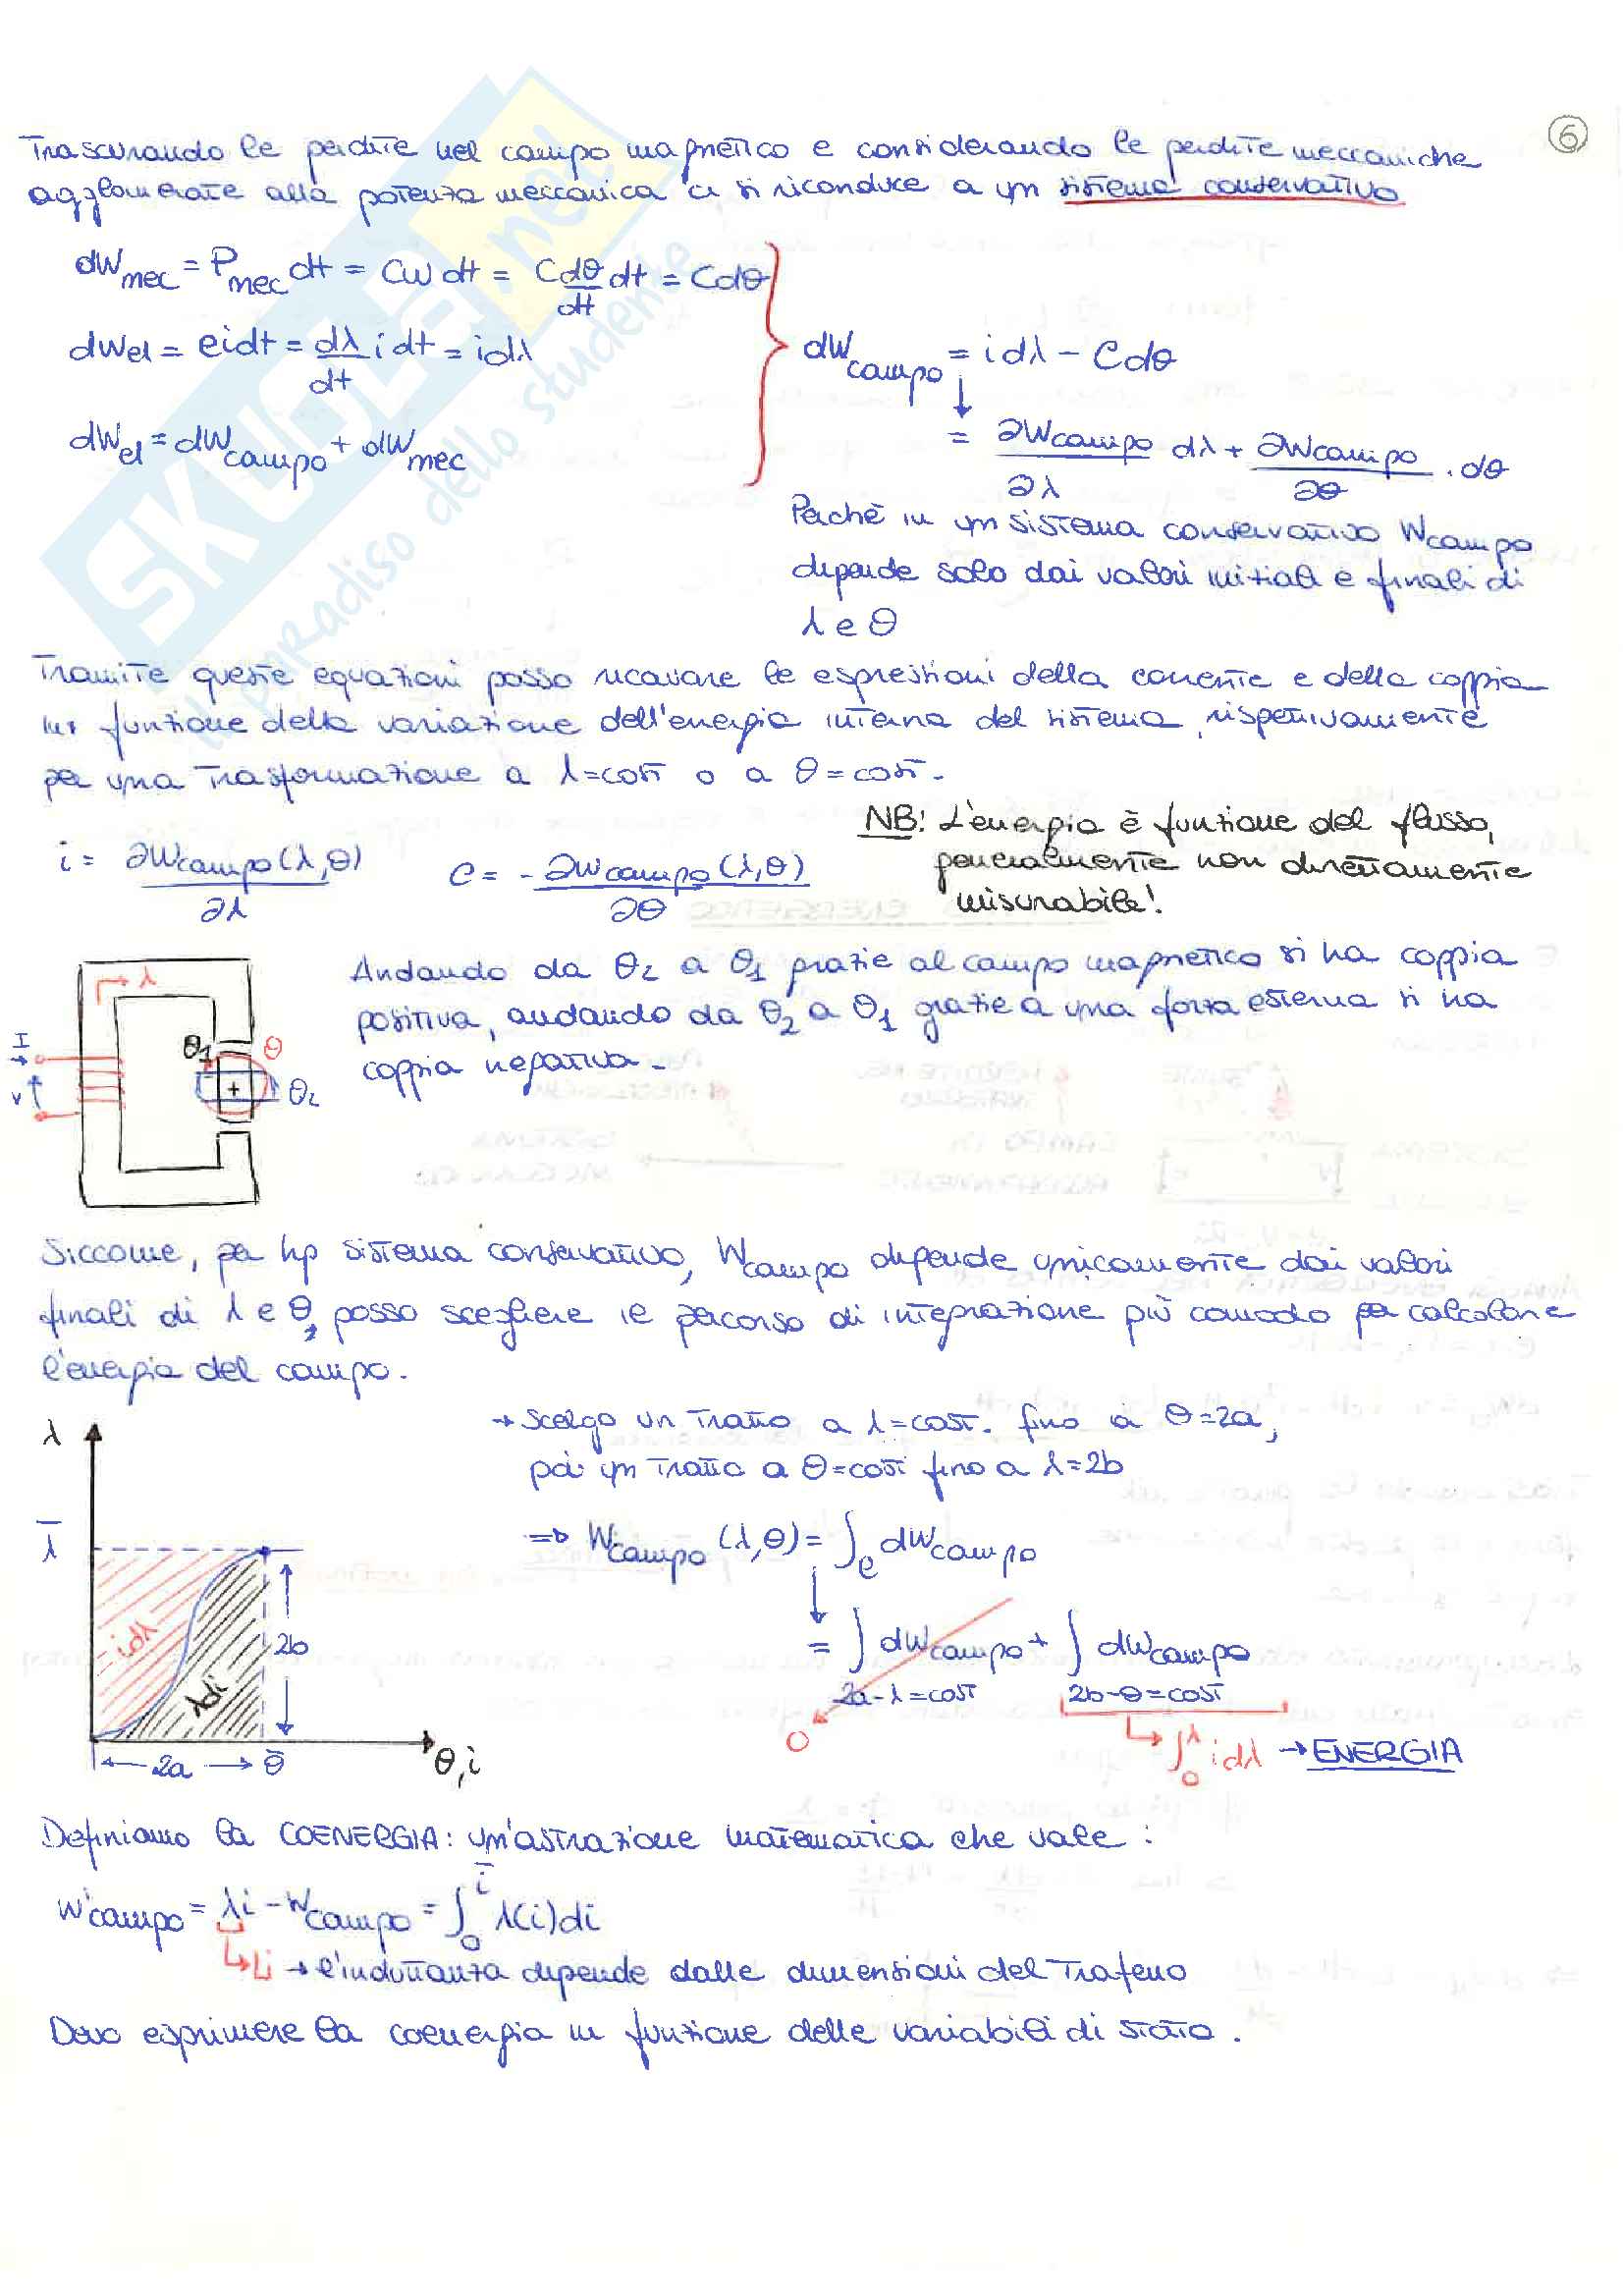 6
Trascurando le perdite nel campo magnetico e considerando le perdite meccaniche
agglomerate alla potenza meccanica ci si riconduce a un sistema conservativo
dWmec = Pmec dt = Cω dt = C dθ/dt dt = C dθ
dWel = e i dt = dλ/dt i dt = i dλ
dWel = dWcampo + dWmec
dWcampo = i dλ - C dθ
= ∂Wcampo/∂λ dλ + ∂Wcampo/∂θ · dθ
Perchè in un sistema conservativo Wcampo
dipende solo dai valori iniziali e finali di
λ e θ
Tramite queste equazioni posso ricavare le espressioni della corrente e della coppia
in funzione della variazione dell'energia interna del sistema, rispettivamente
per una trasformazione a λ=cost o a θ=cost.
NB! L'energia è funzione del flusso,
generalmente non direttamente
misurabile!
i = ∂Wcampo(λ,θ)/∂λ
C = - ∂Wcampo(λ,θ)/∂θ
Andando da θ2 a θ1 grazie al campo magnetico si ha coppia
positiva, andando da θ2 a θ1 grazie a una forza esterna si ha
coppia negativa.
λ
I
v
θ1
θ
θ2
Siccome, per hp sistema conservativo, Wcampo dipende unicamente dai valori
finali di λ e θ, posso scegliere il percorso di integrazione più comodo per calcolare
l'energia del campo.
→ Scelgo un tratto a λ=cost. fino a θ=2a,
poi un tratto a θ=cost fino a λ=2b
⇒ Wcampo (λ,θ) = ∫e dWcampo
= ∫ dWcampo + ∫ dWcampo
2a-λ=cost 2b-θ=cost
0
∫0^λ i dλ → ENERGIA
λ
λ̄
idλ
λdi
2b
2a
θ̄
θ,i
Definiamo la COENERGIA: un'astrazione matematica che vale:
W'campo = λi - Wcampo = ∫0^ī λ(i)di
Li → l'induttanza dipende dalle dimensioni del traferro
Devo esprimere la coenergia in funzione delle variabili di stato.
SKUOLA.net
il paradiso dello studente